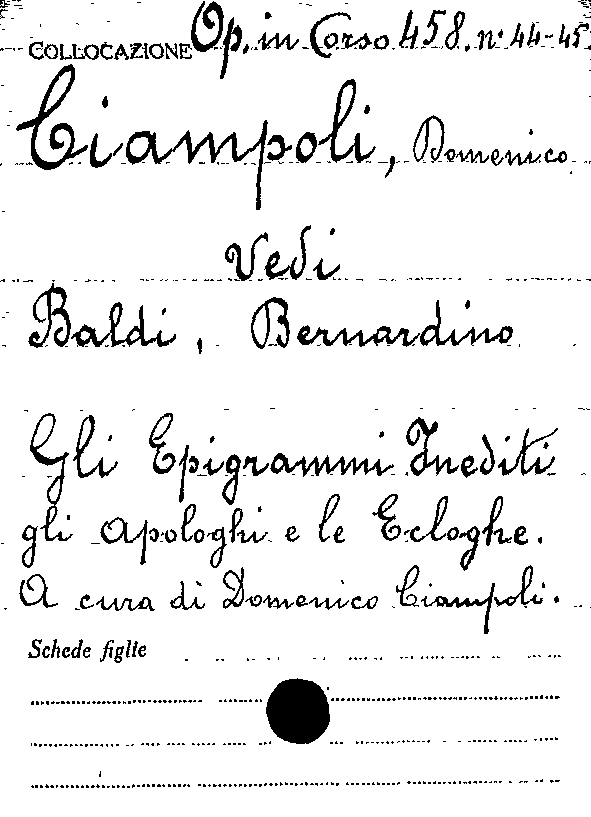 COLLOCAZIONE Op. in Corso 458. n. 44-45.
Ciampoli, Domenico
Vedi
Baldi, Bernardino
Gli Epigrammi Inediti
gli Apologhi e le Ecloghe.
A cura di Domenico Ciampoli.
Schede figlie